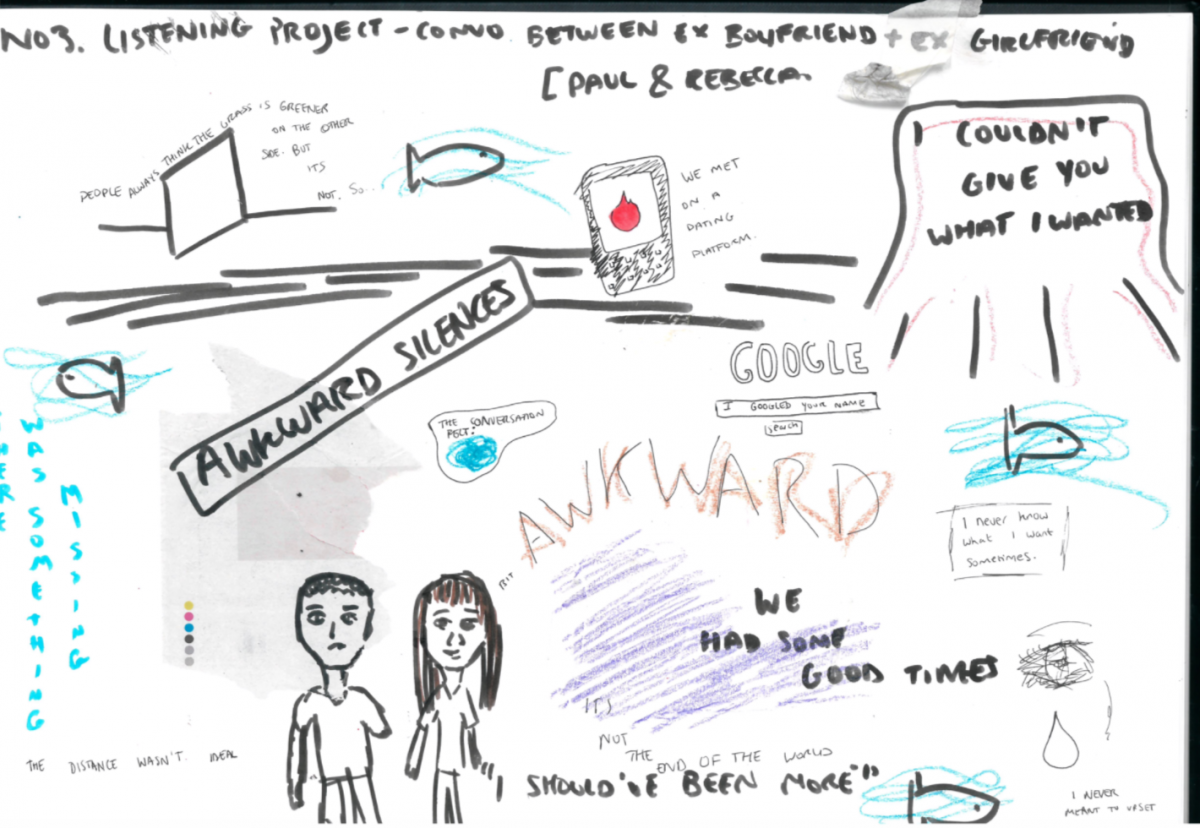 NO3. LISTENING PROJECT - CONVO BETWEEN EX BOYFRIEND + EX GIRLFRIEND
[PAUL & REBECCA.
PEOPLE ALWAYS THINK THE GRASS IS GREENER
ON THE OTHER
SIDE. BUT
ITS
NOT. SO..
WE MET
ON A
DATING
PLATFORM.
I COULDN'T
GIVE YOU
WHAT I WANTED
AWKWARD SILENCES
GOOGLE
I GOOGLED YOUR NAME
SEARCH
THE CONVERSATION
FELT:
BIT
AWKWARD
I never know
what I want
sometimes.
THERE
WAS SOMETHING
MISSING
WE
HAD SOME
GOOD TIMES
ITS
NOT
THE
END OF THE WORLD
THE DISTANCE WASN'T IDEAL
"I SHOULD'VE BEEN MORE"
I NEVER
MEANT TO UPSET